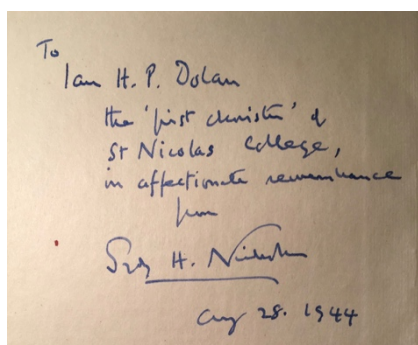 To
Ian H. P. Dolan
the 'first chorister' of
St Nicolas College,
in affectionate remembrance
from
H. Nicholson
Aug 28. 1944